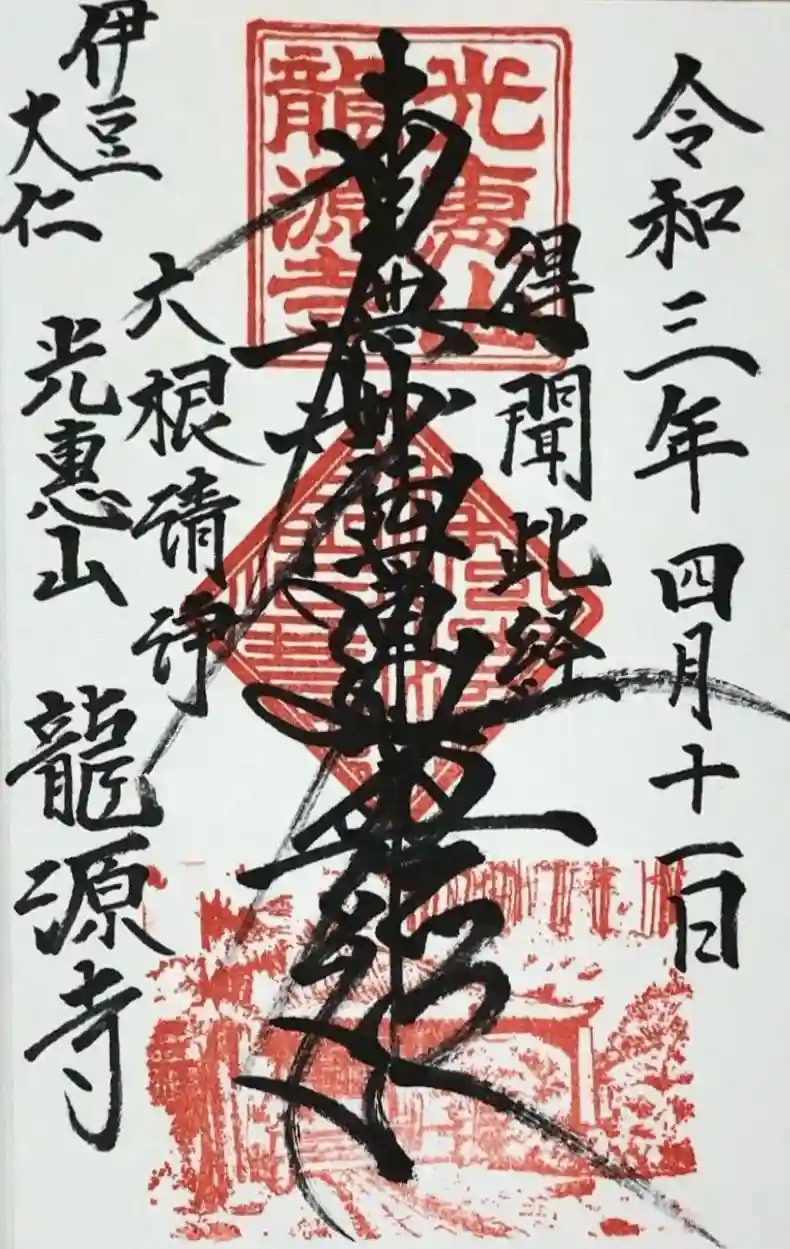 令和三年四月十一日
得聞此経
光惠山
龍源寺
南無妙法蓮華経
六根清浄
伊豆
大仁
光惠山 龍源寺